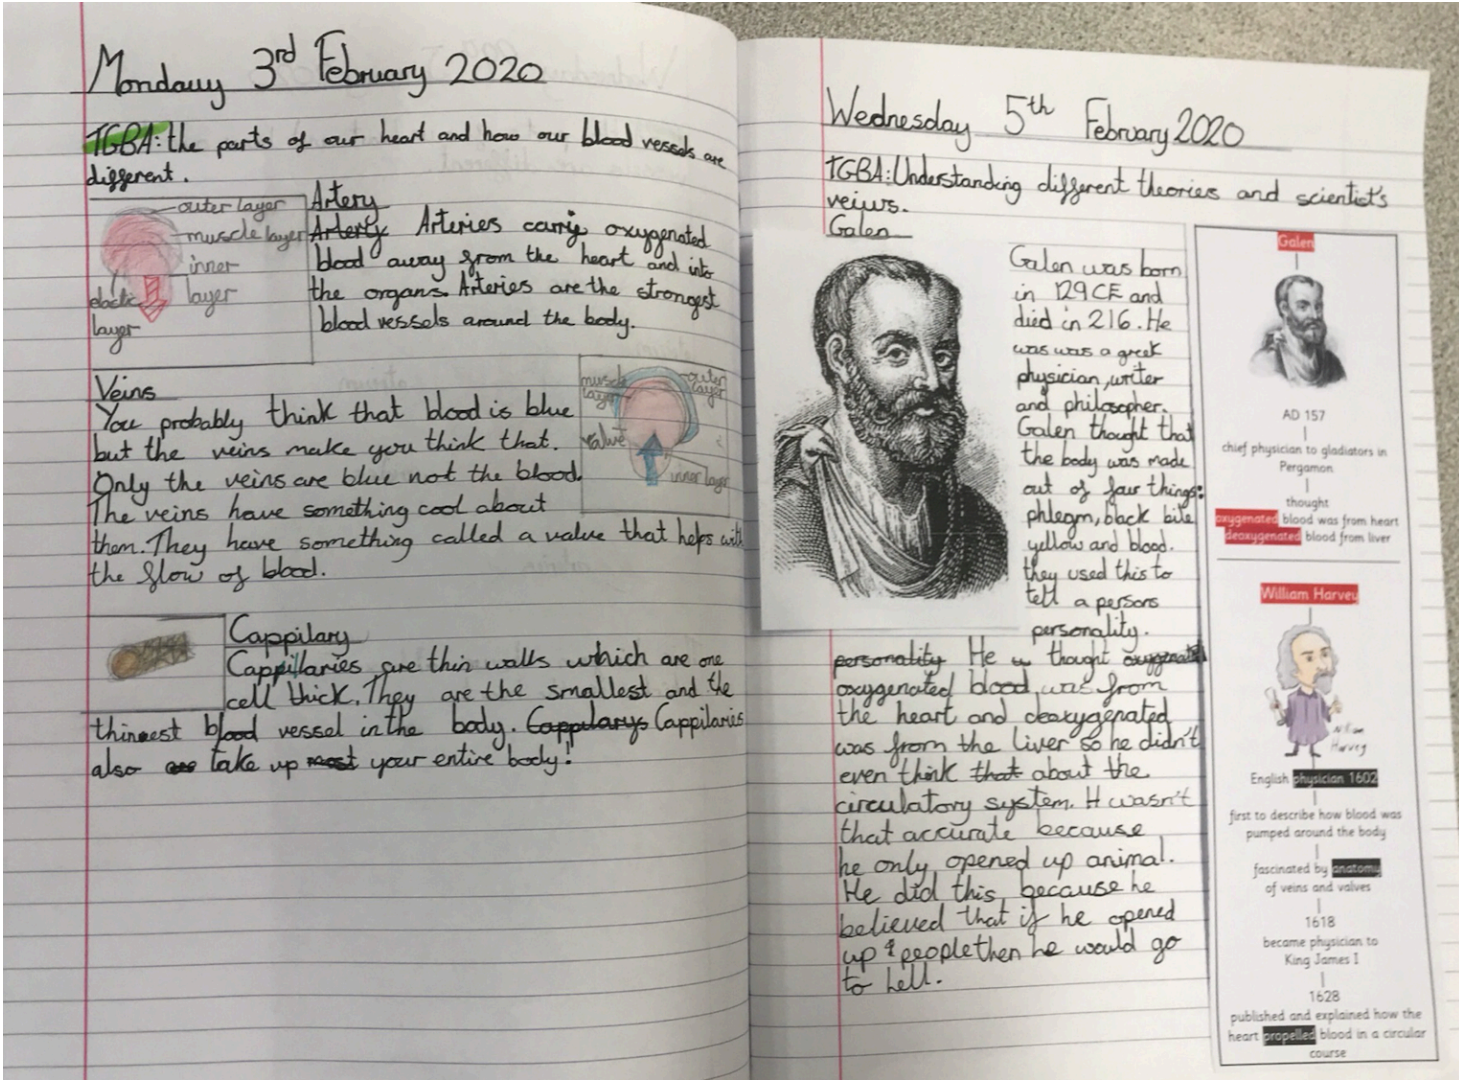 Monday 3rd February 2020
TGBA: the parts of our heart and how our blood vessels are
different.
outer layer
muscle layer
inner
layer
elastic
layer
Artery
Arterty Arteries carry oxygenated
blood away from the heart and into
the organs. Arteries are the strongest
blood vessels around the body.
Veins
You probably think that blood is blue
but the veins make you think that.
Only the veins are blue not the blood.
The veins have something cool about
them. They have something called a value that helps with
the flow of blood.
muscle
layer
outer
layer
valve
inner layer
Cappilary
Cappillaries are thin walls which are one
cell thick. They are the smallest and the
thinnest blood vessel in the body. Cappilarys Cappilaries
also take up most your entire body!
Wednesday 5th February 2020
TGBA: Understanding different theories and scientist's
veiws.
Galen
Galen was born
in 129 CE and
died in 216. He
was was a greek
physician, writer
and philosopher.
Galen thought that
the body was made
out of four things:
phlegm, back bile
yellow and blood.
they used this to
tell a persons
personality.
personality He thought oxygenated
oxygenated blood was from
the heart and deoxygenated
was from the liver so he didn't
even think that about the
circulatory system. H wasn't
that accurate because
he only opened up animal.
He did this because he
believed that if he opened
up people then he would go
to hell.
Galen
AD 157
chief physician to gladiators in
Pergamon
thought
oxygenated blood was from heart
deoxygenated blood from liver
William Harvey
William
Harvey
English physician 1602
first to describe how blood was
pumped around the body
fascinated by anatomy
of veins and valves
1618
became physician to
King James I
1628
published and explained how the
heart propelled blood in a circular
course